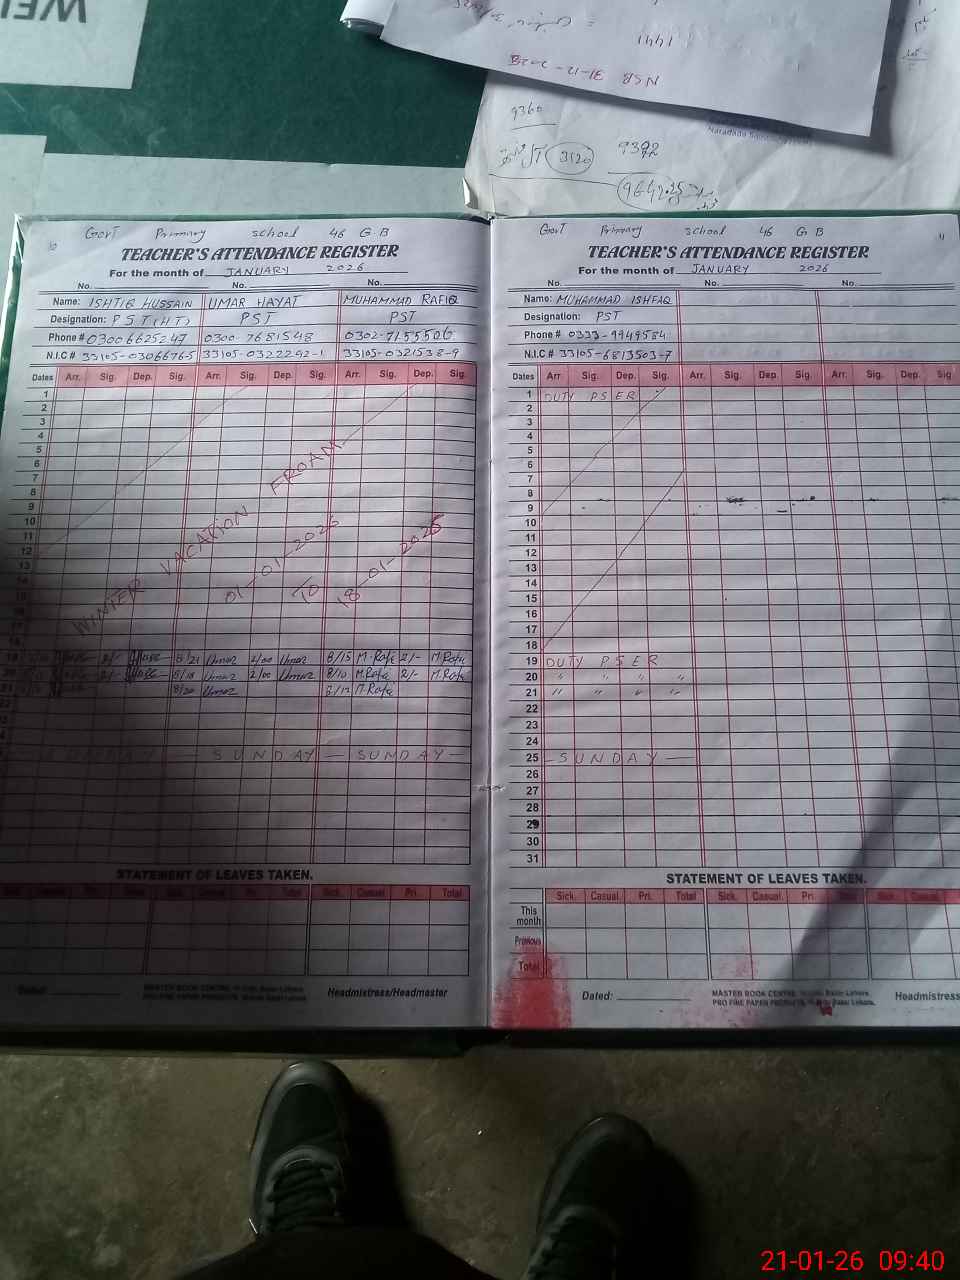 WEL
1441
NSB 31-12-2025
9360
3120
9392
9642.25
10
Govt Primary school 46 G B
TEACHER'S ATTENDANCE REGISTER
For the month of JANUARY 2026
No. No. No.
Name: ISHTIQ HUSSAIN UMAR HAYAT MUHAMMAD RAFIQ
Designation: PST(HT) PST PST
Phone # 03006625247 0300-7681548 0302-7155506
N.I.C # 33105-0306676-5 33105-0322292-1 33105-0321538-9
Dates Arr. Sig. Dep. Sig. Arr. Sig. Dep. Sig. Arr. Sig. Dep. Sig.
1
2
3
4
5
6
7
8
9
10
11
12
13
14
15
16
17
18
WINTER VACATION FROAM
01-01-2026
TO
18-01-2026
19 8/21 Umar 2/00 Umar 8/15 M.Rafi 2/- M.Rafi
20 8/18 Umar 2/00 Umar 8/10 M.Rafi 2/- M.Rafi
21 8/20 Umar 8/12 M.Rafi
22
SUNDAY — SUNDAY —
STATEMENT OF LEAVES TAKEN.
Sick. Casual Pri. Total
Dated:
MASTER BOOK CENTRE
PRO FINE PAPER PRODUCTS
Headmistress/Headmaster
11
Govt Primary school 46 G B
TEACHER'S ATTENDANCE REGISTER
For the month of JANUARY 2026
No. No. No.
Name: MUHAMMAD ISHFAQ
Designation: PST
Phone # 0333-9949584
N.I.C # 33105-6813503-7
Dates Arr. Sig. Dep. Sig. Arr. Sig. Dep. Sig. Arr. Sig. Dep. Sig
1 DUTY PSER
2
3
4
5
6
7
8
9
10
11
12
13
14
15
16
17
18
19 DUTY PSER
20 " " " "
21 " " " "
22
23
24
25 — SUNDAY —
26
27
28
29
30
31
STATEMENT OF LEAVES TAKEN.
Sick. Casual. Pri. Total Sick. Casual. Pri. Total Sick. Casual.
This month
Previous
Total
Dated:
MASTER BOOK CENTRE
PRO FINE PAPER PRODUCTS
Headmistress
21-01-26 09:40